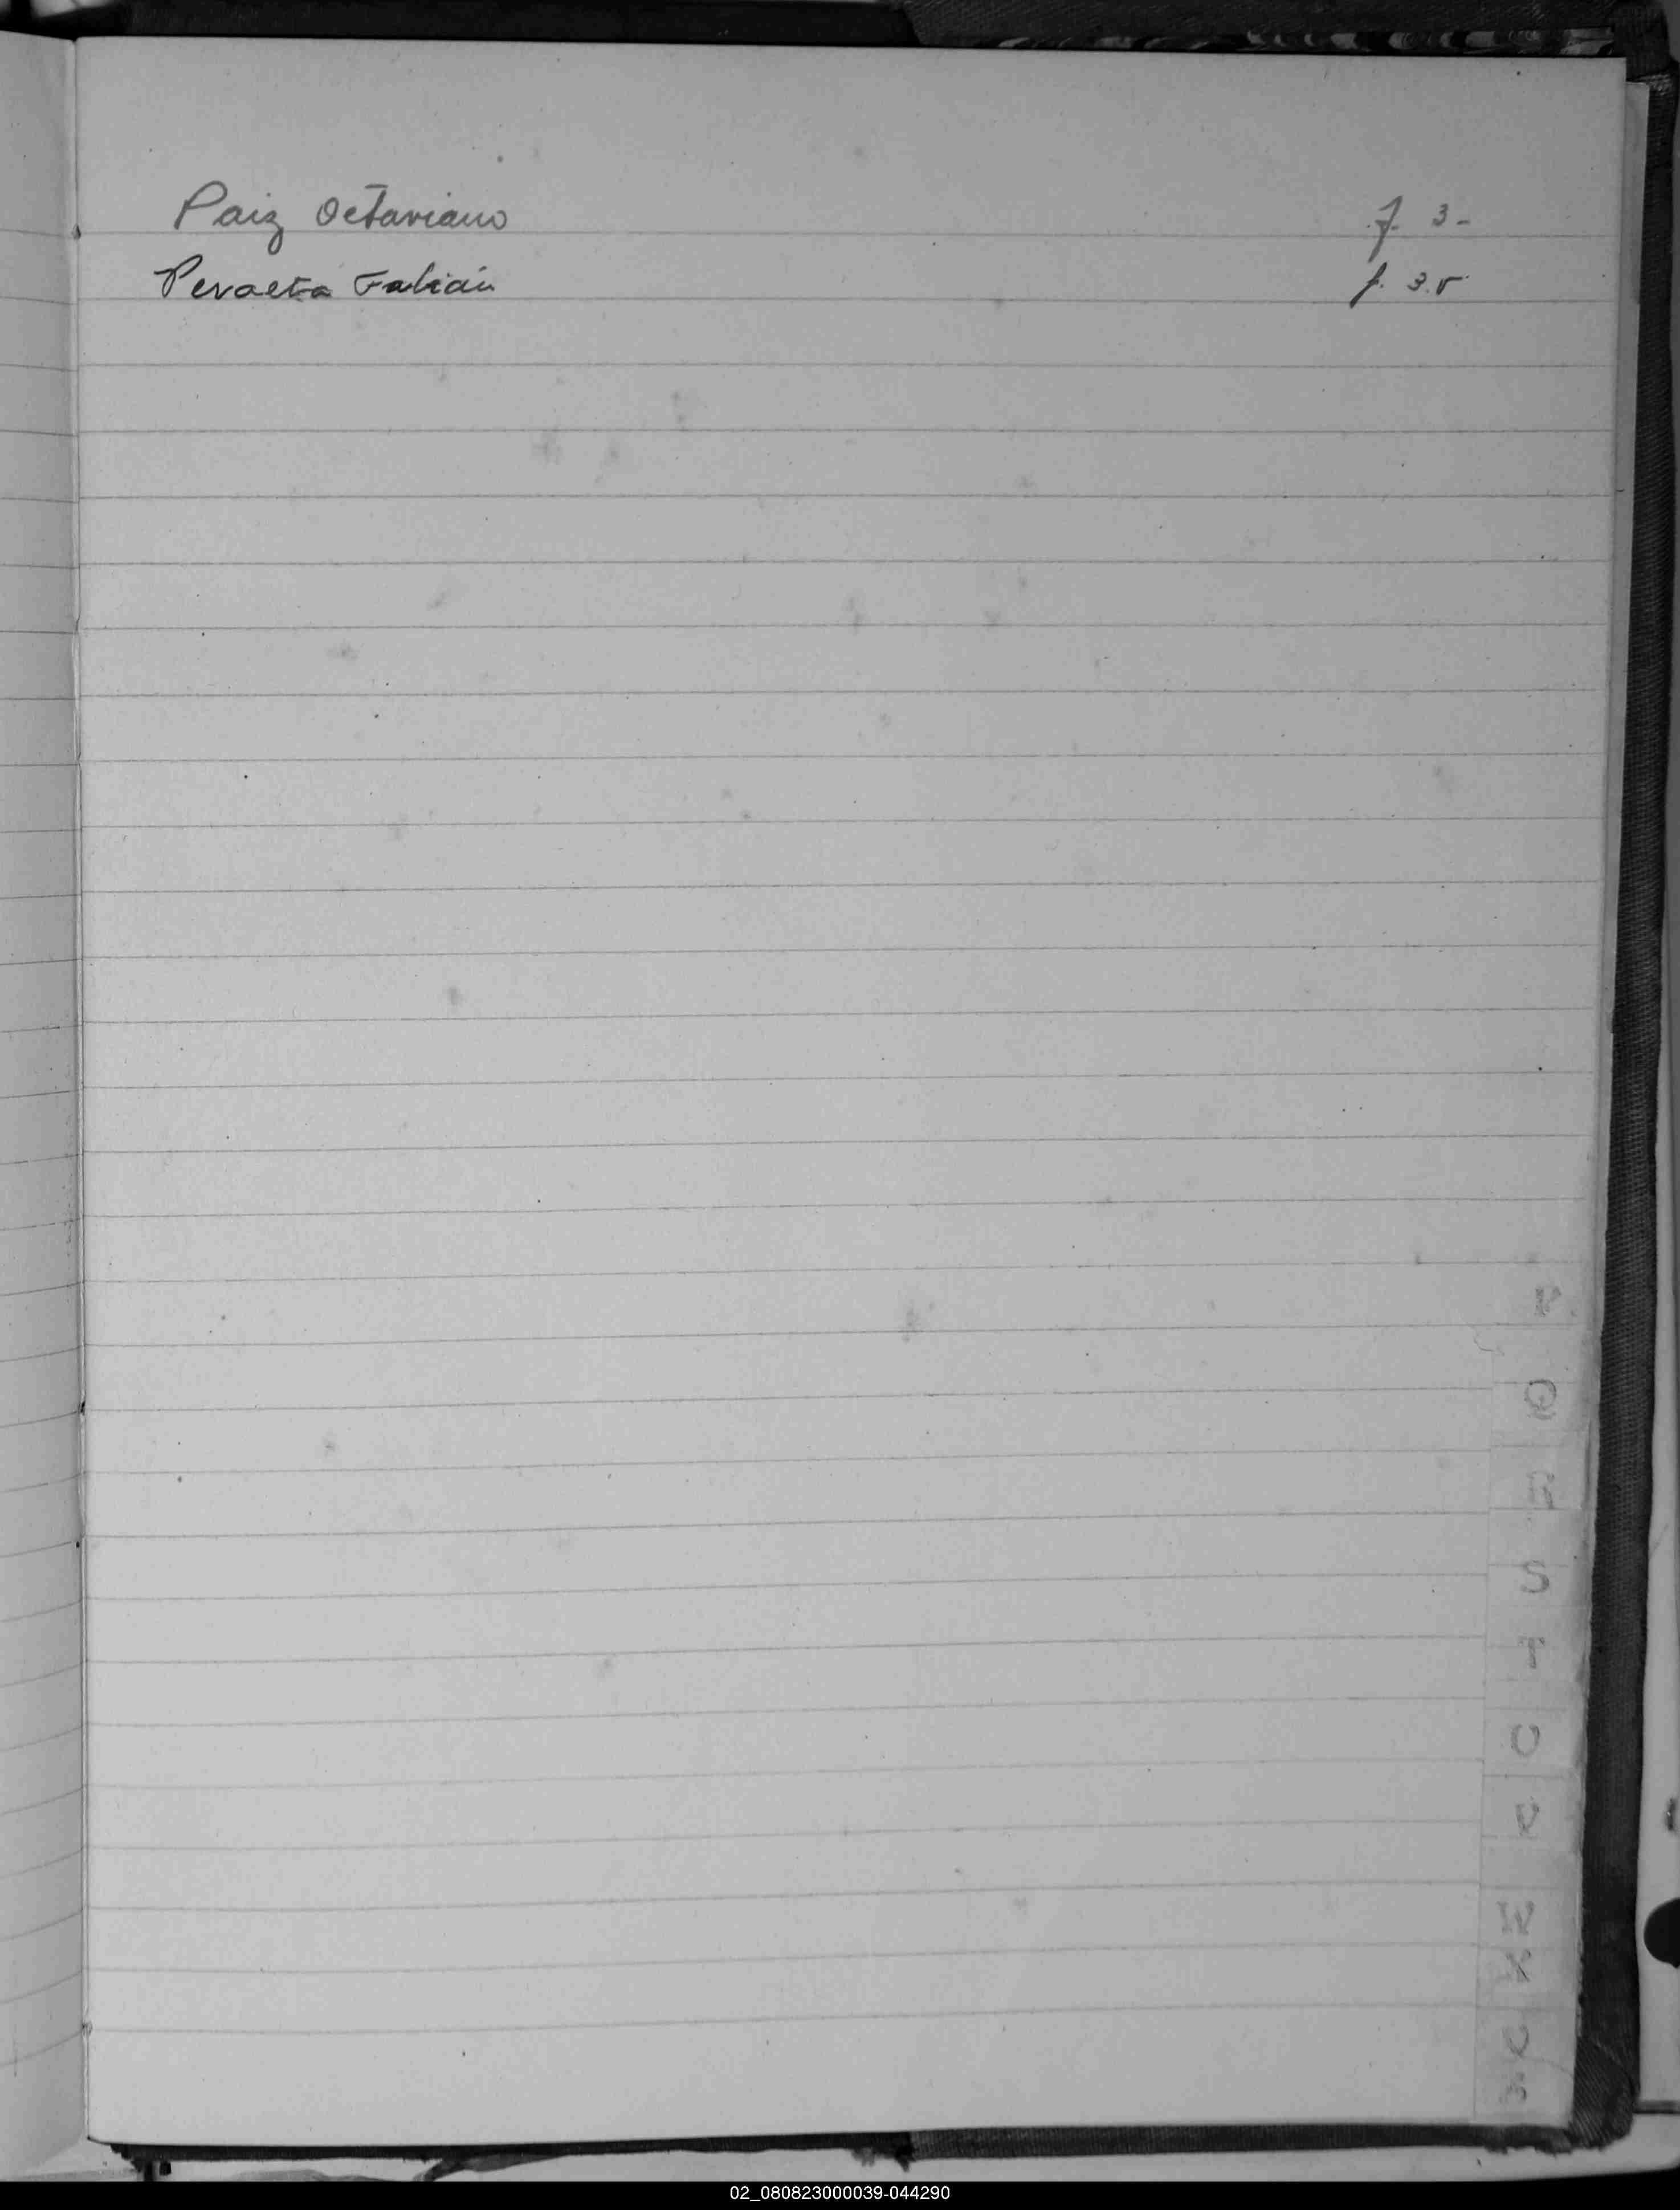 Paiz Octaviano f. 3-
Peralta Fabián f. 3.v
P
Q
R
S
T
U
V
W
X
Y
Z
02_080823000039-044290